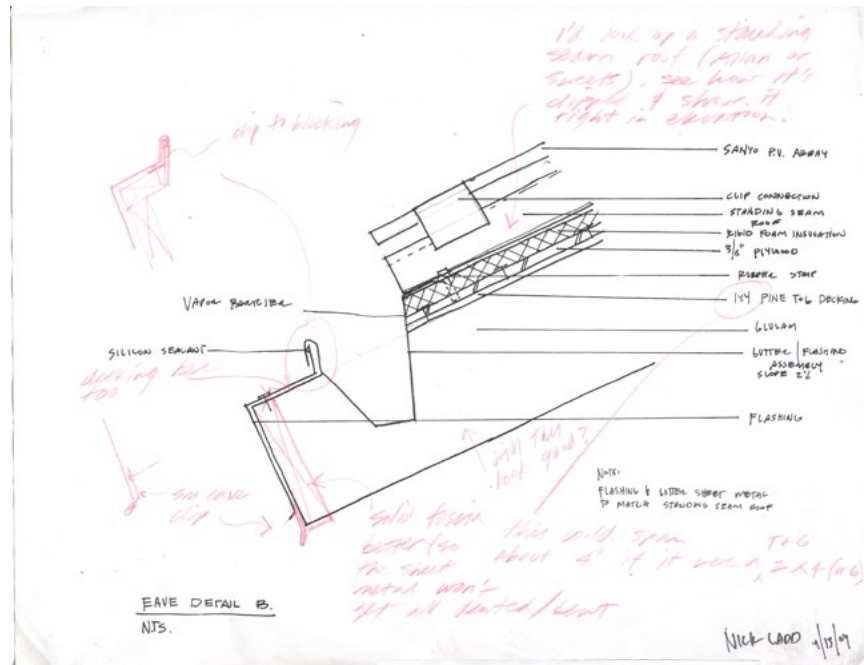 I'd look up a standing
seam roof (Allan or
Sweets), see how it's
clipped & show it
right in elevation.
clip to blocking
SANYO P.V. ARRAY
CLIP CONNECTION
STANDING SEAM
ROOF
RIGID FOAM INSULATION
3/8" PLYWOOD
RUBBER STRIP
VAPOR BARRIER
1X4 PINE T+G DECKING
GLULAM
SILICON SEALANT
GUTTER / FLASHING
ASSEMBLY
SLOPE 2%
decking here
too
FLASHING
will this
look good?
NOTE:
FLASHING & GUTTER SHEET METAL
TO MATCH STANDING SEAM ROOF
sm eave
clip
solid fascia
better (so
the sheet
metal won't
get all dented/bent
this could span T+G
about 4' if it were a 2x4 (or 6)
EAVE DETAIL B.
NTS.
NICK LADD 4/15/09